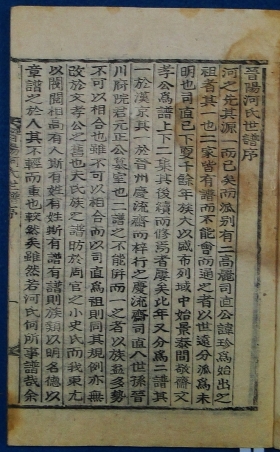 晋陽河氏世譜序
河之先其源一而已矣而派別有二高麗司直公諱珍爲始出之
祖者其一也二家皆有譜而不能會而通之者以世遠分派爲未
明也司直巳下 餘年族人以盛布列域中始景泰間敬齋文
孝公爲譜上下 集其後續而修焉者屢矣此年又分爲二譜
一於漢京其一於晉州慶流齋而梓行之慶流齋司直八世孫晉
川府院君元正公墓室也二譜之不能倂而一之者以族益多勢
不可以相合也雖不可以相合而以司直爲祖則同其規例亦無
改於文孝公之舊也夫氏族之譜昉於周官之小史氏而我東尤
以閥閱相高有人斯有姓有姓斯有譜有譜則族類以明名德以
章譜之於人其不輕而重也較然矣雖然若河氏何所事譜哉余